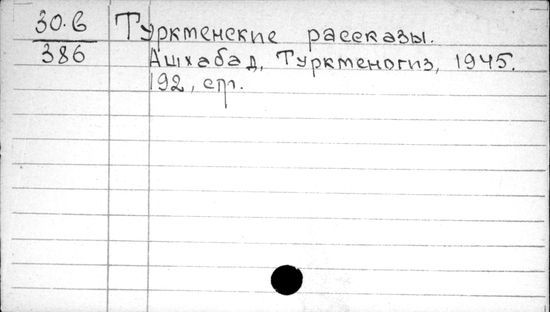 30.6
386
Туркменские рассказы.
Ашхабад, Туркменогиз, 1945.
192, стр.